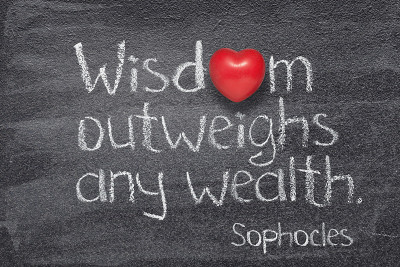 Wisdom
outweighs
any wealth.
Sophocles